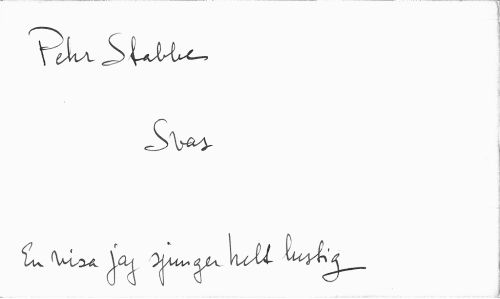 Pehr Stabbe
Svas
En visa jag sjunger helt lustig